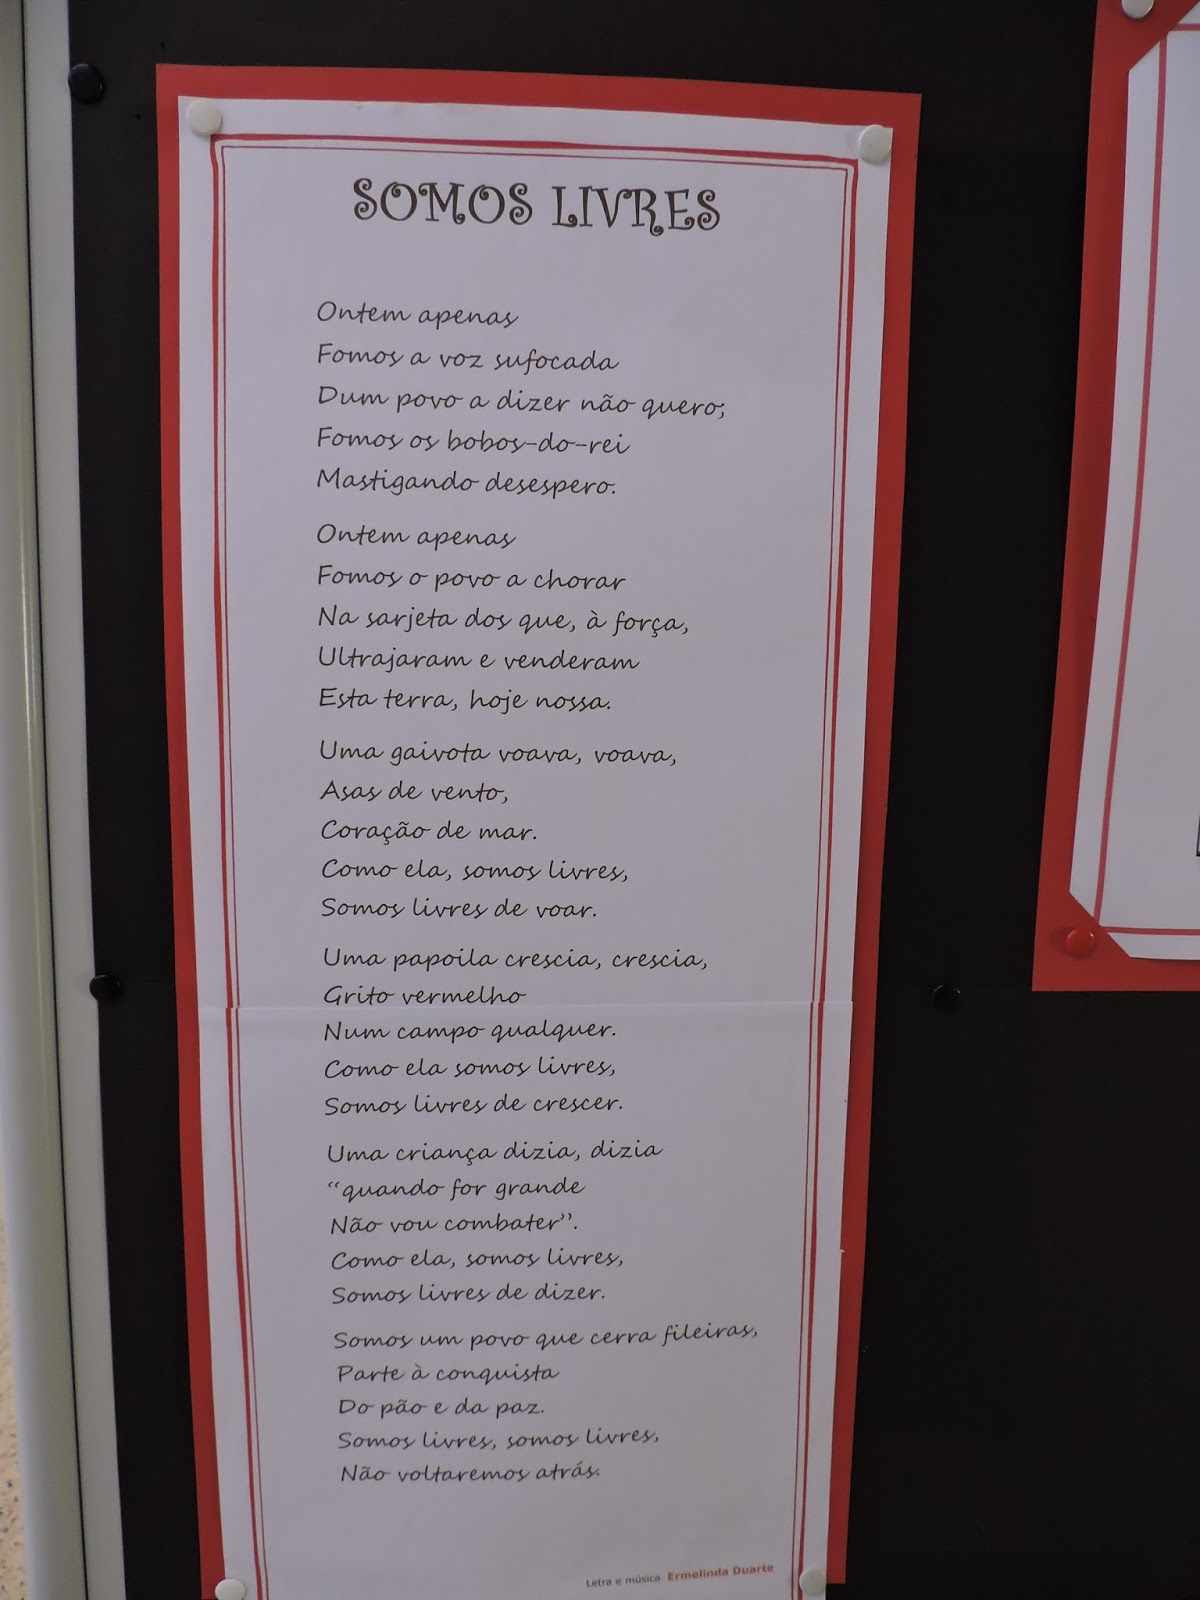 SOMOS LIVRES
Ontem apenas
Fomos a voz sufocada
Dum povo a dizer não quero;
Fomos os bobos-do-rei
Mastigando desespero.
Ontem apenas
Fomos o povo a chorar
Na sarjeta dos que, à força,
Ultrajaram e venderam
Esta terra, hoje nossa.
Uma gaivota voava, voava,
Asas de vento,
Coração de mar.
Como ela, somos livres,
Somos livres de voar.
Uma papoila crescia, crescia,
Grito vermelho
Num campo qualquer.
Como ela somos livres,
Somos livres de crescer.
Uma criança dizia, dizia
“quando for grande
Não vou combater”.
Como ela, somos livres,
Somos livres de dizer.
Somos um povo que cerra fileiras,
Parte à conquista
Do pão e da paz.
Somos livres, somos livres,
Não voltaremos atrás.
Letra e música: Ermelinda Duarte